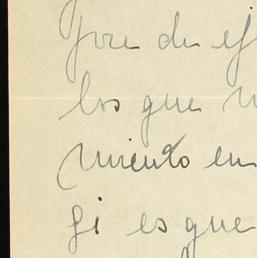 que de ej
los que n
miento en
si es que